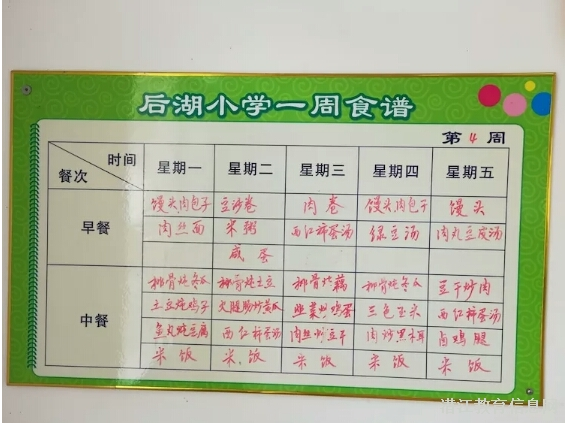 后湖小学一周食谱
第 4 周
时间
餐次
星期一 星期二 星期三 星期四 星期五
早餐
馒头肉包子 豆沙卷 肉卷 馒头肉包子 馒头
肉丝面 米粥 西红柿蛋汤 绿豆汤 肉丸豆皮汤
咸蛋
中餐
排骨炖冬瓜 排骨炖土豆 排骨炖藕 排骨炖冬瓜 豆干炒肉
土豆炖鸡子 火腿肠炒黄瓜 韭菜炒鸡蛋 三色玉米 西红柿蛋汤
鱼丸炖豆腐 西红柿蛋汤 肉丝炒豆干 肉炒黑木耳 卤鸡腿
米饭 米饭 米饭 米饭 米饭
潜江教育信息